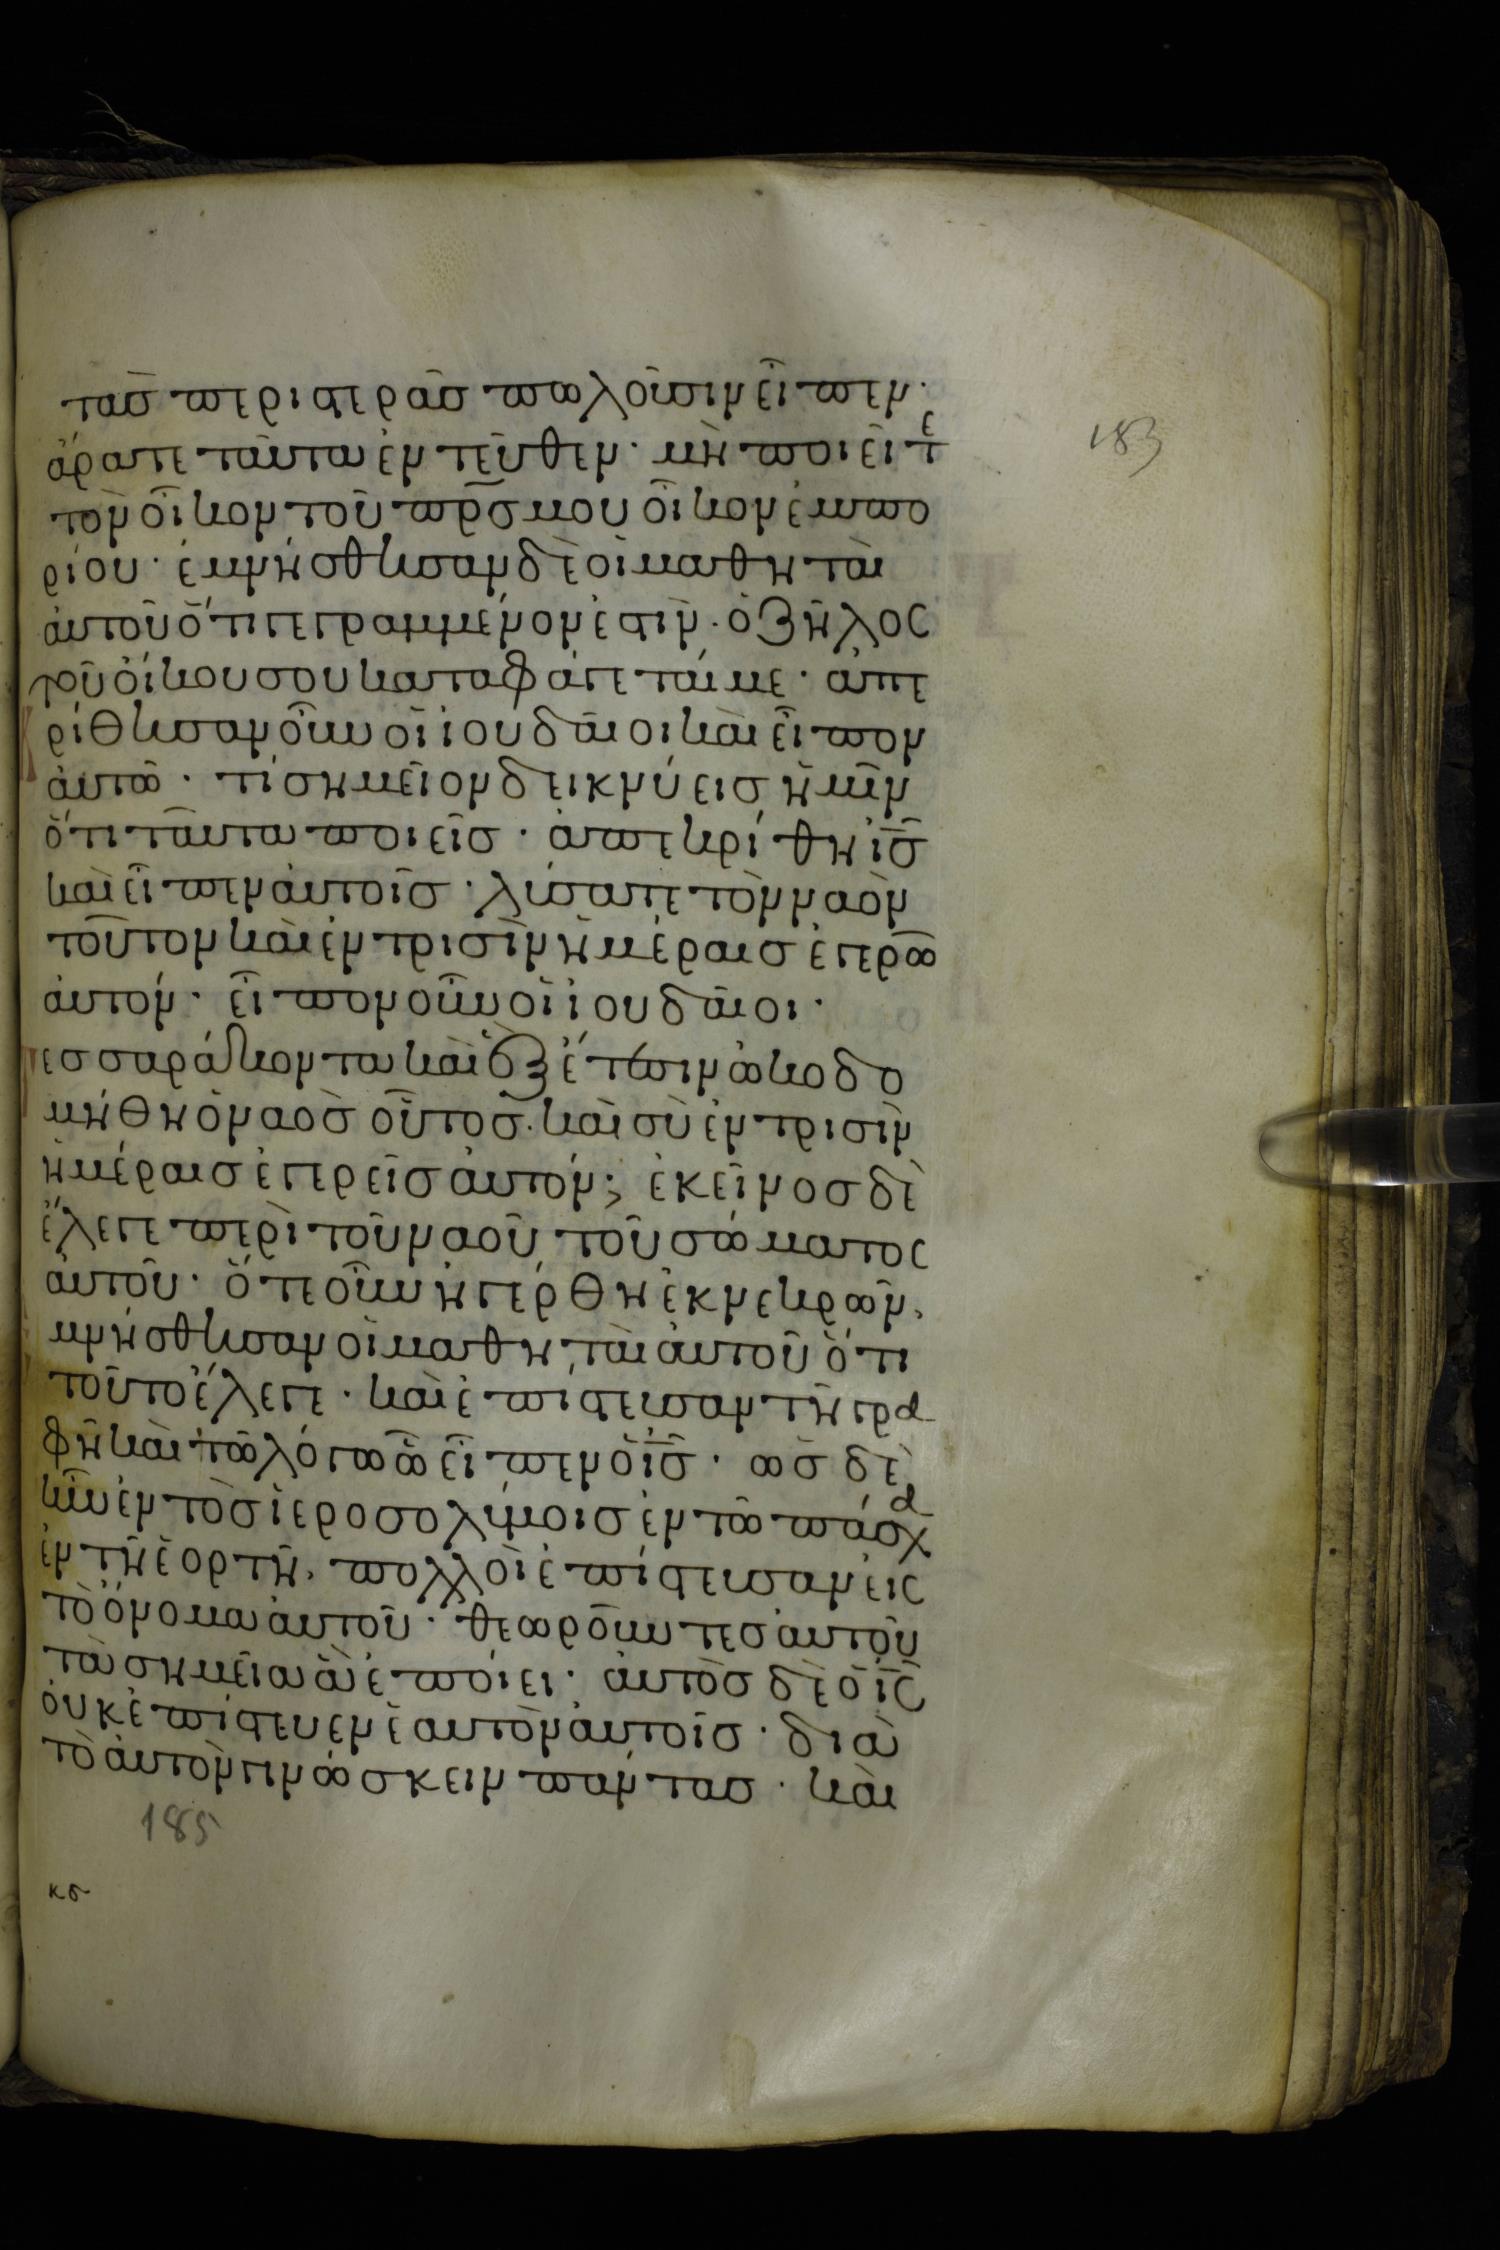 τὰς περιστερὰς πωλοῦσιν εἶπεν·
183
ἄρατε ταῦτα ἐντεῦθεν· μὴ ποιεῖτε
τὸν οἶκον τοῦ πρ̅ς μου οἶκον ἐμπο
ρίου· ἐμνήσθησαν δὲ οἱ μαθηταὶ
αὐτοῦ ὅτι γεγραμμένον ἐστὶν· ὁ ζῆλος
τοῦ οἴκου σου καταφάγεταί με· ἀπε
κρίθησαν οὖν οἱ ἰουδαῖοι καὶ εἶπον
αὐτῶ· τί σημεῖον δεικνύεις ἡμῖν
ὅτι ταῦτα ποιεῖς· ἀπεκρίθη ἰς̅
καὶ εἶπεν αὐτοῖς· λύσατε τὸν ναὸν
τοῦτον καὶ ἐν τρισὶν ἡμέραις ἐγερῶ
αὐτόν· εἶπον οὖν οἱ ἰουδαῖοι·
Τεσσαράκοντα καὶ ἓξ ἔτεσιν ὠκοδο
μήθη ὁ ναὸς οὗτος· καὶ σὺ ἐν τρισὶν
ἡμέραις ἐγερεῖς αὐτόν; ἐκεῖνος δὲ
ἔλεγε περὶ τοῦ ναοῦ τοῦ σώματος
αὐτοῦ· ὅτε οὖν ἠγέρθη ἐκ νεκρῶν,
ἐμνήσθησαν οἱ μαθηταὶ αὐτοῦ ὅτι
τοῦτο ἔλεγε· καὶ ἐπίστευσαν τῆ γρα
φῆ καὶ τῶ λόγω ὧ εἶπεν ὁ ἰς̅· ὡς δὲ
ἦν ἐν τοῖς ἱεροσολύμοις ἐν τῶ πάσχα
ἐν τῆ ἑορτῆ, πολλοὶ ἐπίστευσαν εἰς
τὸ ὄνομα αὐτοῦ· θεωροῦντες αὐτοῦ
τὰ σημεῖα ἃ ἐποίει· αὐτὸς δὲ ὁ ἰς̅
οὐκ ἐπίστευεν ἑαυτὸν αὐτοῖς· διὰ
τὸ αὐτὸν γινώσκειν πάντας· καὶ
185
κσ